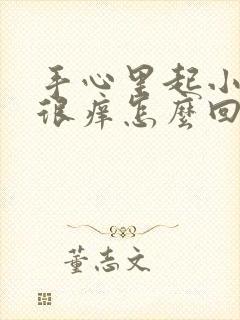 手心里起小
很痒怎麼回
董志文